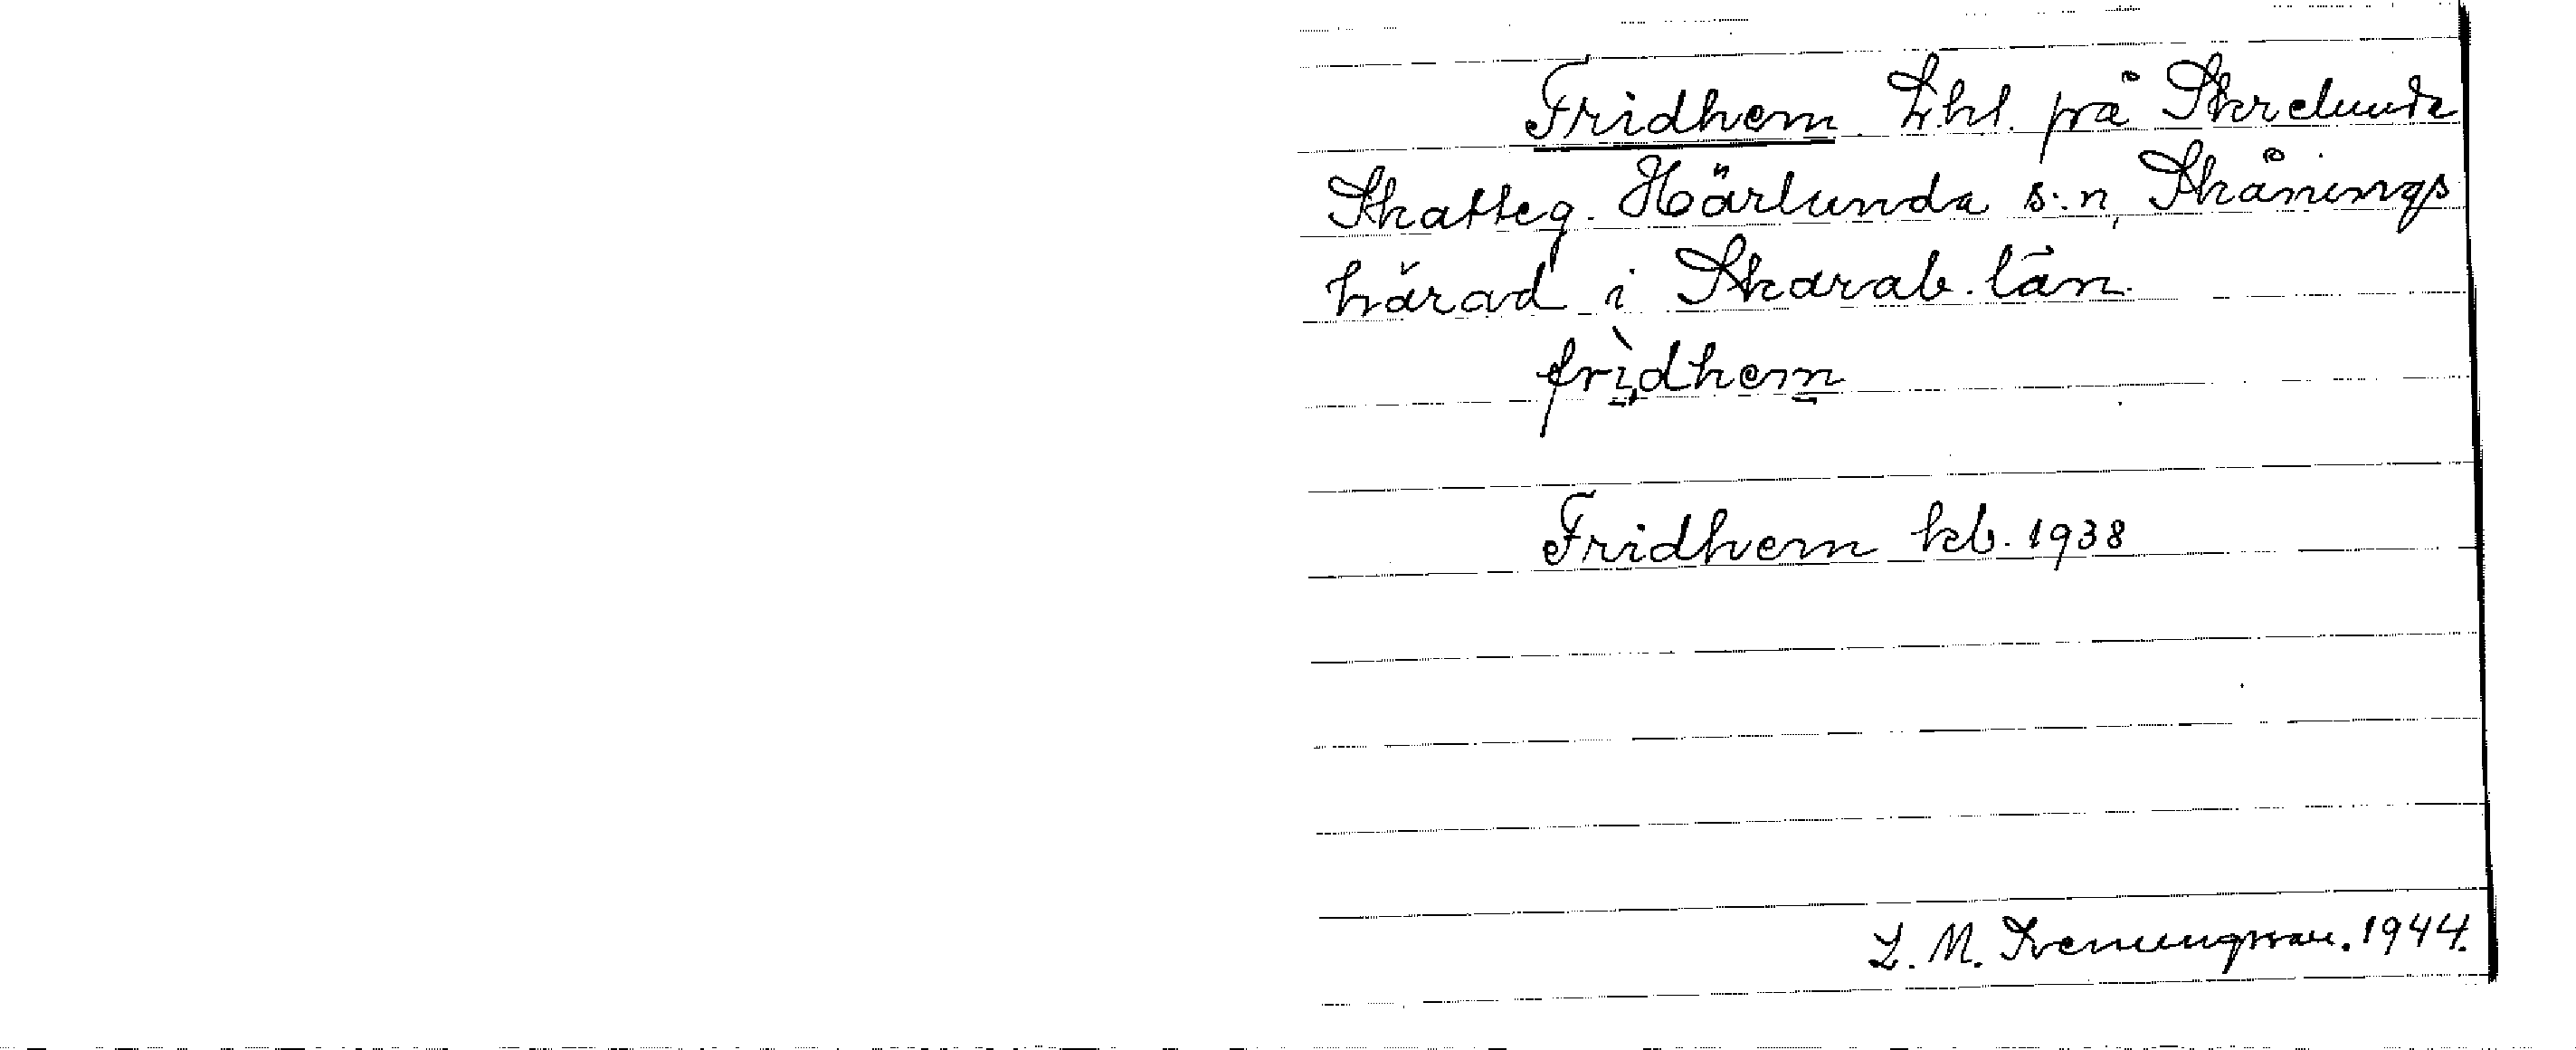 Fridhem Lht. på Skrelunda
Skatteg. Härlunda s:n, Skånings
härad i Skarab. län.
frìdhem
Fridhem kb. 1938
L. M. Svenungsson. 1944.